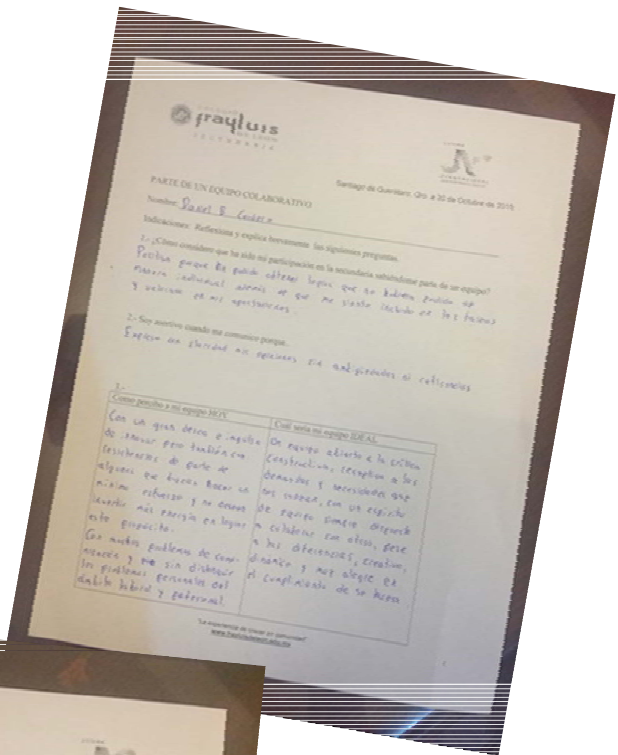 COLEGIO
frayluis
DE LEÓN
SECUNDARIA
Santiago de Querétaro, Qro. a 20 de Octubre de 2015
PARTE DE UN EQUIPO COLABORATIVO
Nombre:
Indicaciones: Reflexiona y explica brevemente las siguientes preguntas.
1.- ¿Cómo considero que ha sido mi participación en la secundaria sintiéndome parte de un equipo?
Positiva porque he podido obtener logros que no hubiera podido de
manera individual además de que me siento incluido en las tareas
y valorado en mis aportaciones.
2.- Soy asertivo cuando me comunico porque..
Expreso con claridad mis opiniones sin ambigüedades ni reticencias
3.-
Como percibo a mi equipo HOY
Con un gran deseo e impulso
de innovar pero también con
resistencias de parte de
algunos que buscan hacer un
mínimo esfuerzo y no desean
invertir más energía en lograr
este propósito.
Con muchos problemas de comu-
nicación y sin distinguir
los problemas personales del
ámbito laboral y patronal.
Cuál sería mi equipo IDEAL
Un equipo abierto a la crítica
constructiva, receptivo a las
demandas y necesidades que
nos rodean, con un espíritu
de equipo siempre dispuesto
a colaborar con otros, pese
a las diferencias, creativo,
dinámico y muy alegre en
el cumplimiento de su tarea.
"La experiencia de crecer en comunidad"
www.frayluisdeleon.edu.mx